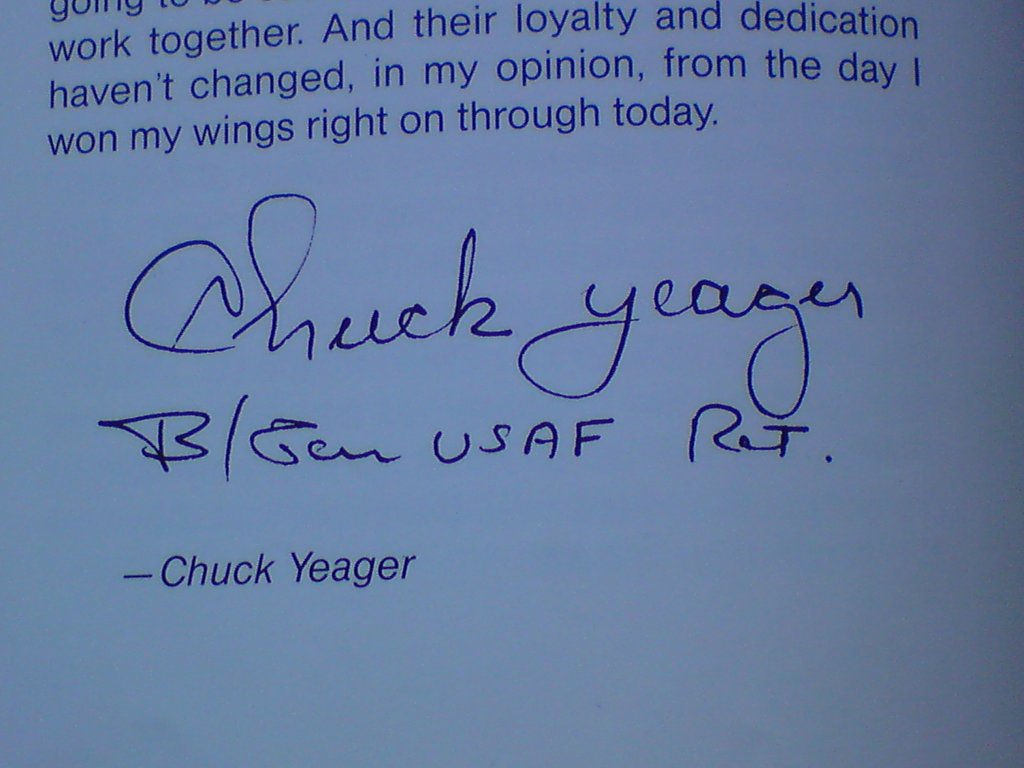 going to be
work together. And their loyalty and dedication
haven't changed, in my opinion, from the day I
won my wings right on through today.
Chuck Yeager
B/Gen USAF Ret.
—Chuck Yeager